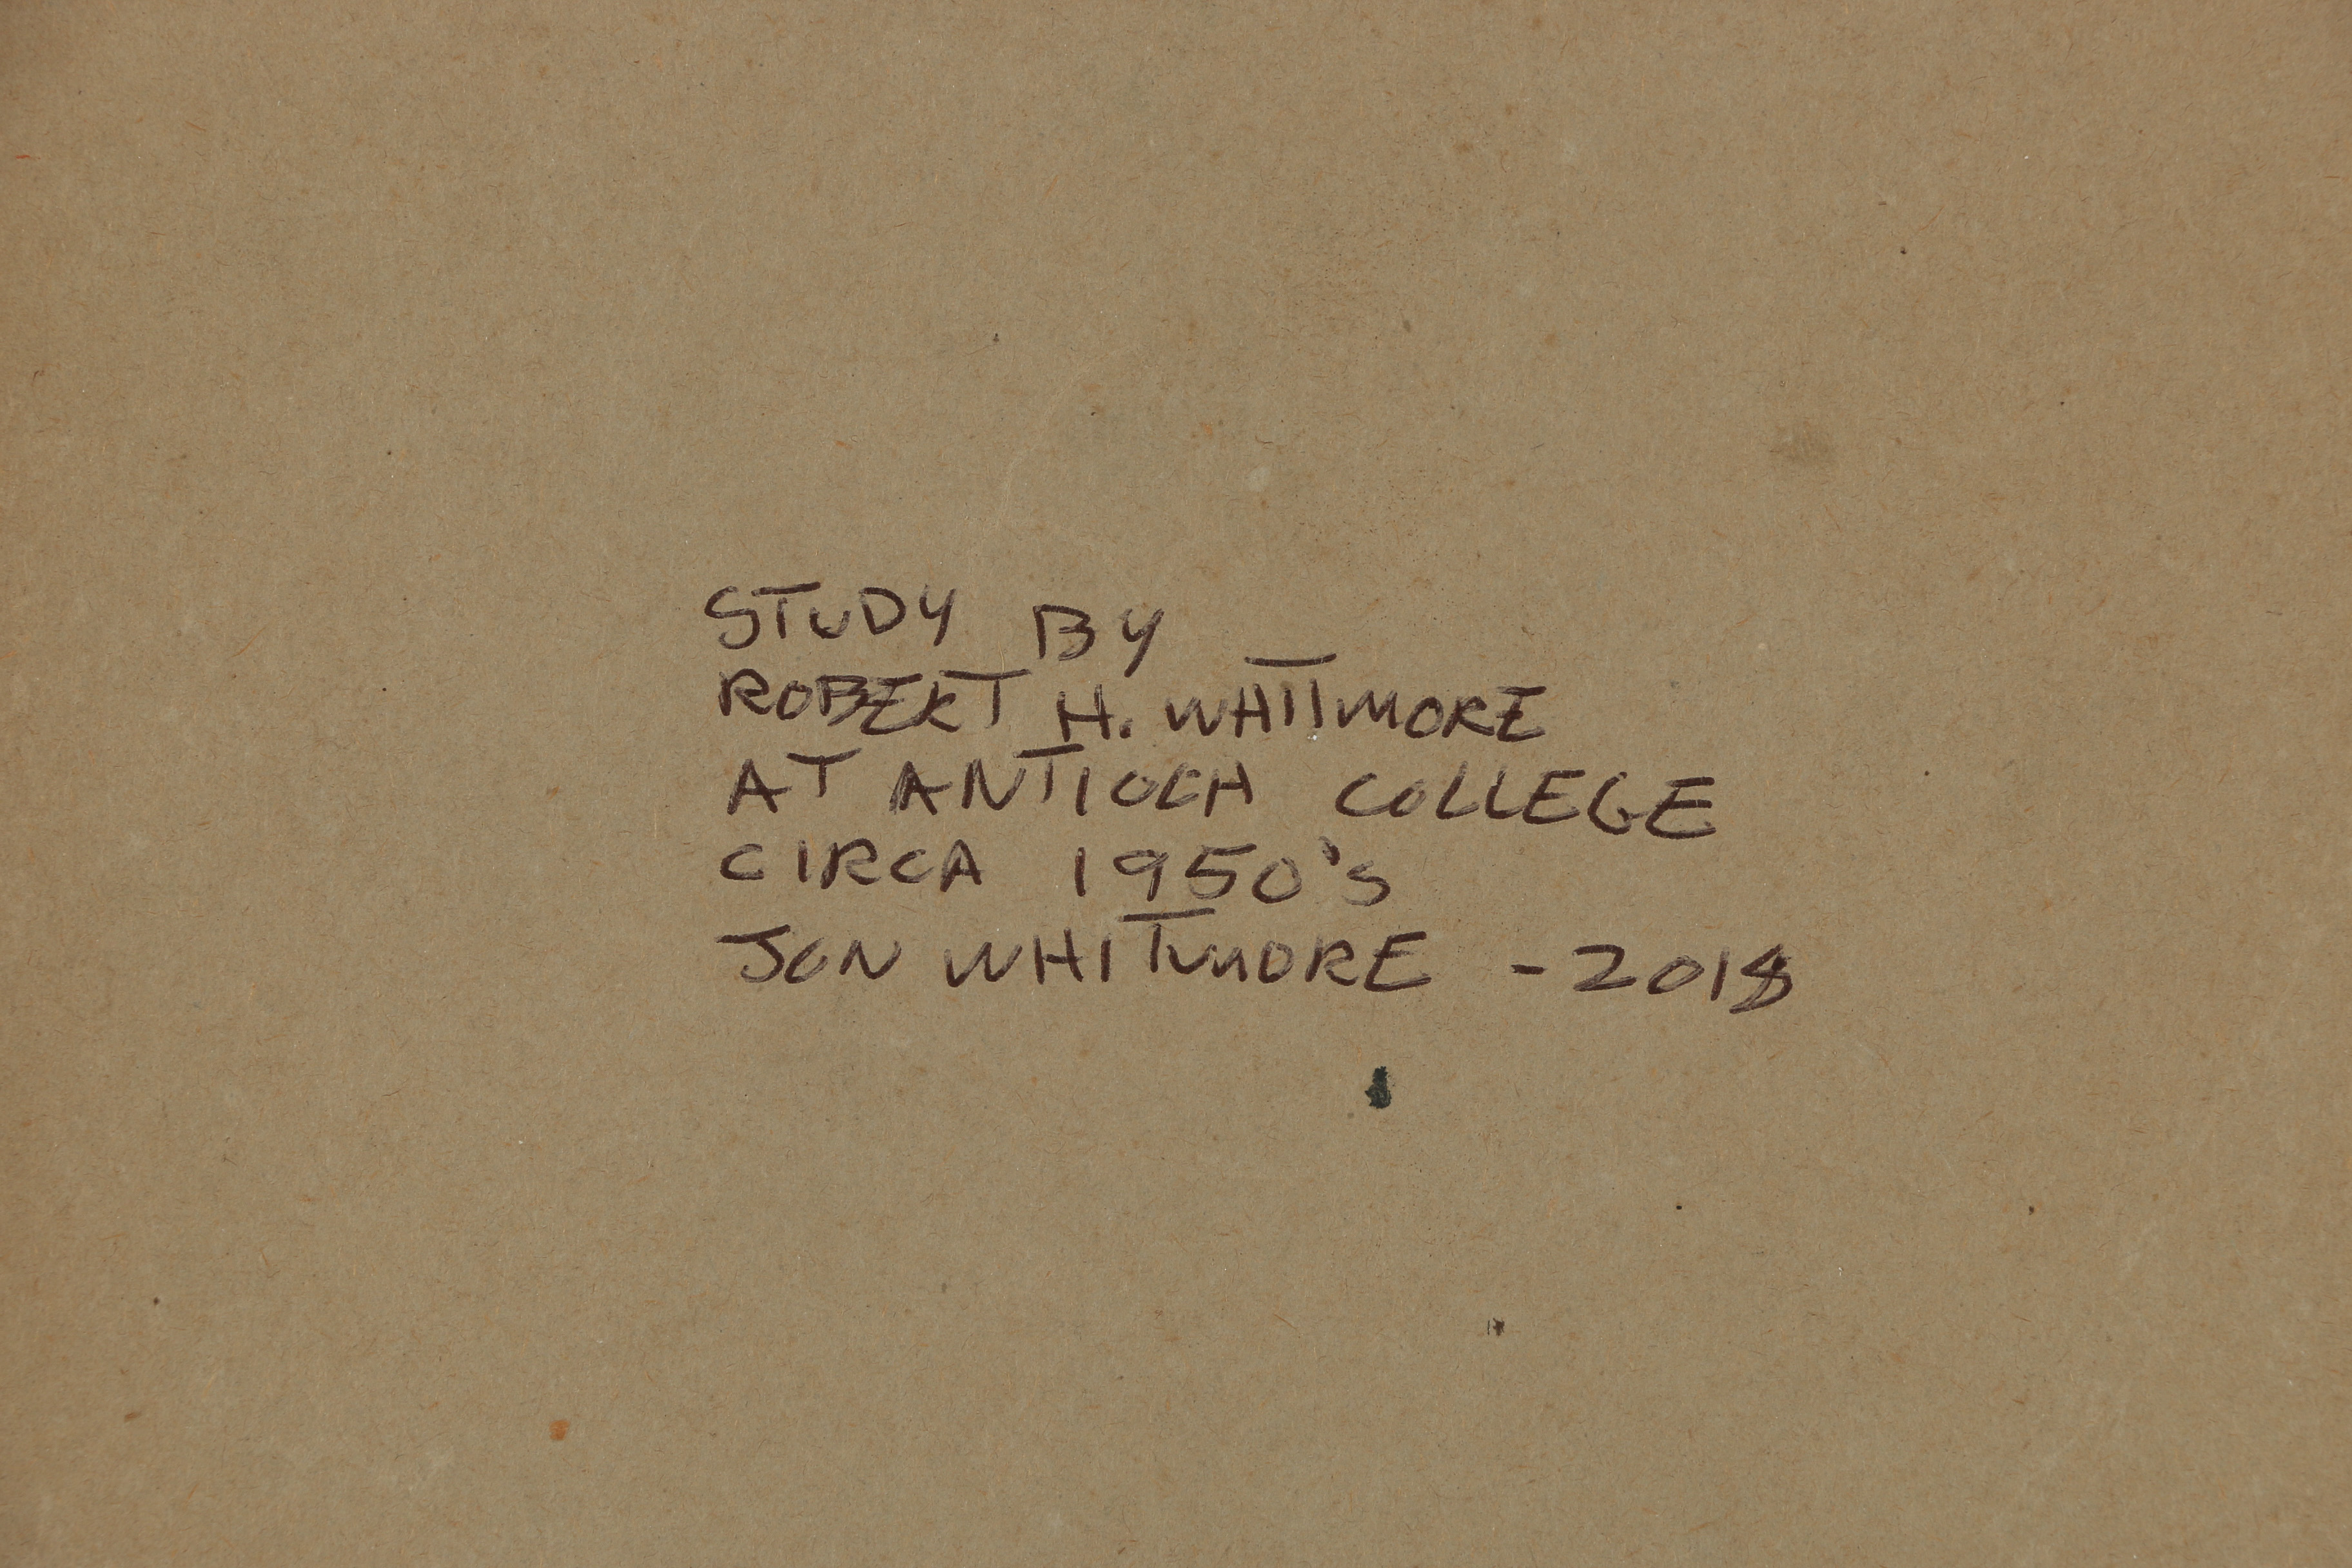 STUDY BY
ROBERT H. WHITMORE
AT ANTIOCH COLLEGE
CIRCA 1950's
JON WHITMORE - 2018